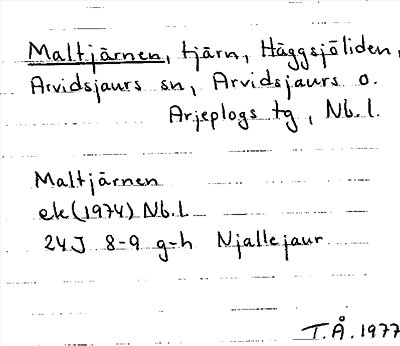 Maltjärnen, tjärn, Häggsjöliden,
Arvidsjaurs sn, Arvidsjaurs o.
Arjeplogs tg, Nb.l.
Maltjärnen
ek (1974) Nb.l
24J 8-9 g-h Njallejaur
T.Å. 1977